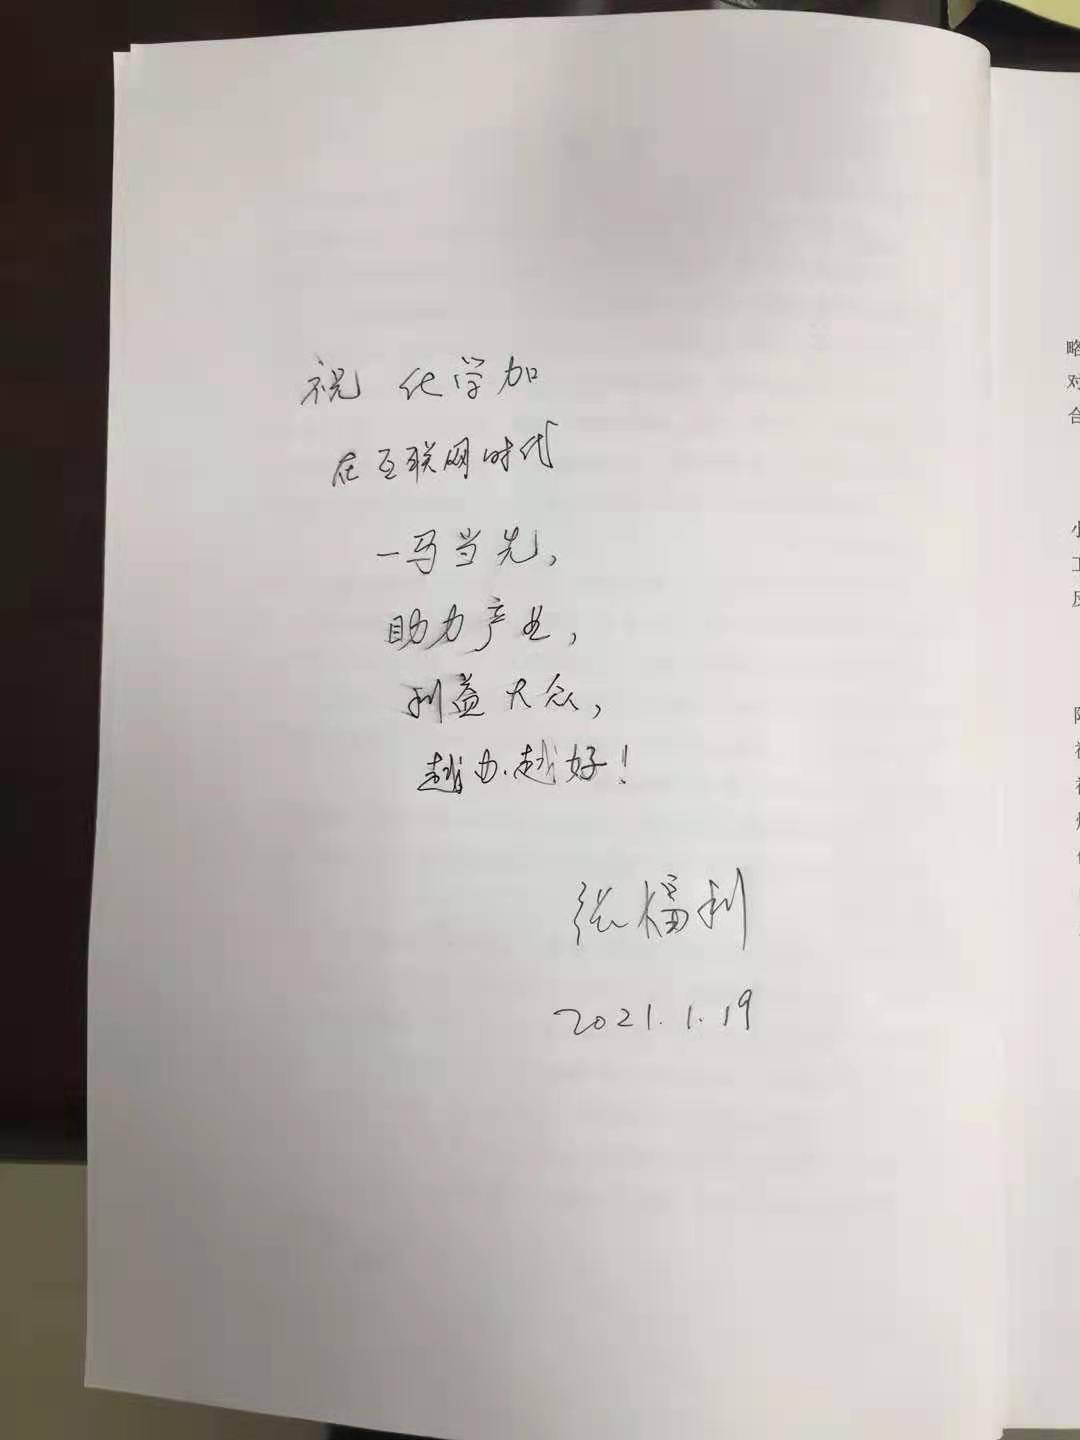 祝 化学加
在互联网时代
一马当先，
助力产业，
利益大众，
越办越好！
张福利
2021.1.19
略
对
合